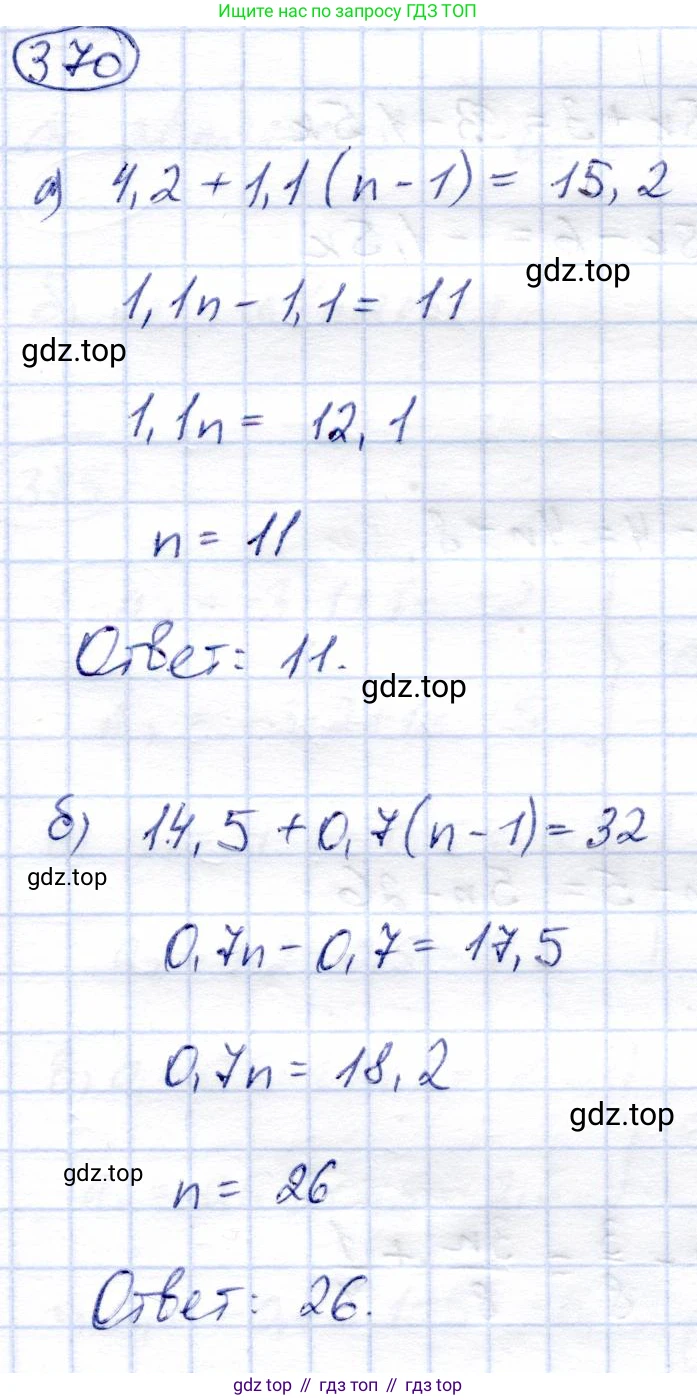 Ищите нас по запросу ГДЗ ТОП
370
а) 4,2 + 1,1(n - 1) = 15,2
gdz.top
1,1n - 1,1 = 11
gdz.top
1,1n = 12,1
n = 11
Ответ: 11.
gdz.top
б) 14,5 + 0,7(n - 1) = 32
gdz.top
0,7n - 0,7 = 17,5
0,7n = 18,2
gdz.top
gdz.top
n = 26
Ответ: 26.
gdz.top // гдз топ // гдз.top